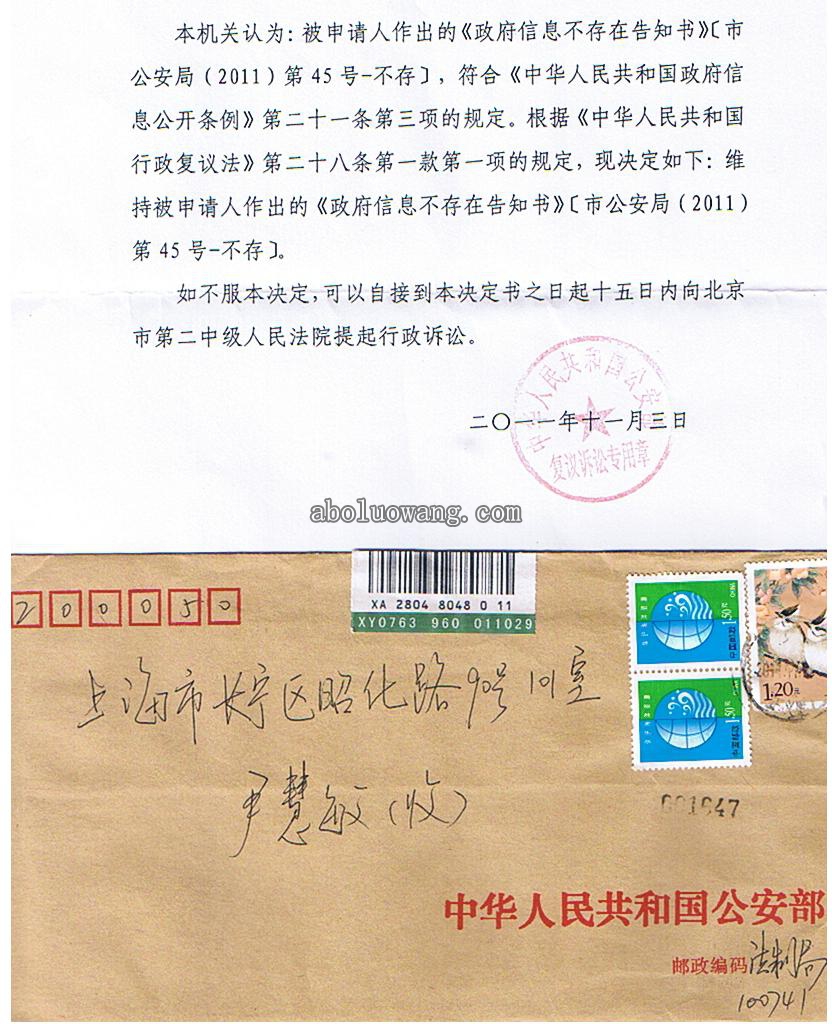 本机关认为：被申请人作出的《政府信息不存在告知书》〔市
公安局（2011）第 45 号-不存〕，符合《中华人民共和国政府信
息公开条例》第二十一条第三项的规定。根据《中华人民共和国
行政复议法》第二十八条第一款第一项的规定，现决定如下：维
持被申请人作出的《政府信息不存在告知书》〔市公安局（2011）
第 45 号-不存〕。
如不服本决定，可以自接到本决定书之日起十五日内向北京
市第二中级人民法院提起行政诉讼。
中华人民共和国公安部
二〇一一年十一月三日
复议诉讼专用章
aboluowang.com
XA 2804 8048 0 11
XY0763 960 011029
200050
上海市长宁区昭化路90号101室
尹慧敏（收）
1.50元
中国邮政
1.50元
中国邮政
1.20元
001647
中华人民共和国公安部
邮政编码 法制局
100741